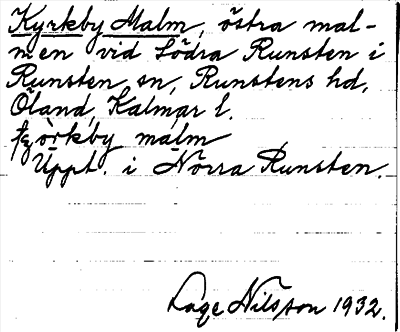 Kyrkby Malm, östra mal-
men vid Södra Runsten i
Runsten sn, Runstens hd,
Öland, Kalmar l.
målm
Uppt. i Norra Runsten.
Lage Nilsson 1932.